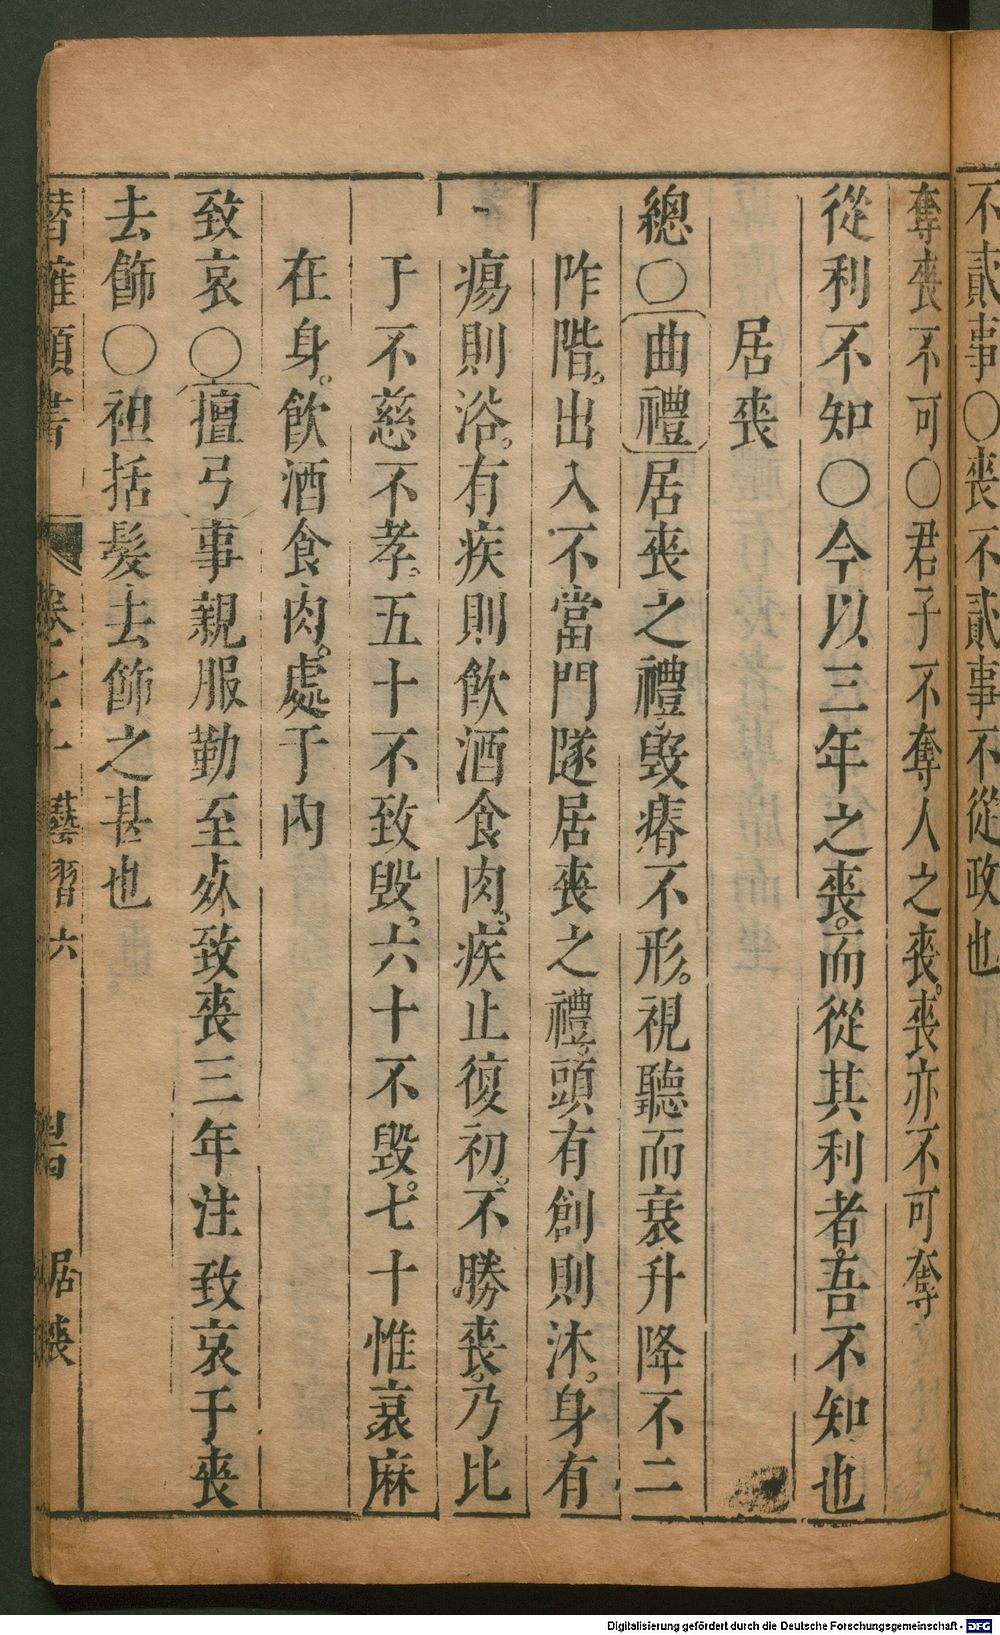 不貳事〇喪不貳事不從政也
奪喪不可〇君子不奪人之喪。喪亦不可奪
從利不知〇今以三年之喪。而從其利者。吾不知也
居喪
總〇曲禮居喪之禮。毀瘠不形。視聽而衰升降不二
阼階。出入不當門隧居喪之禮。頭有創則沐。身有
瘍則浴。有疾則飲酒食肉。疾止復初。不勝喪。乃比
于不慈不孝。五十不致毀。六十不毀。七十惟衰麻
在身。飲酒食肉。處于內
致哀〇檀弓事親服勤至死致喪三年注致哀于喪
去飾〇袒括髮去飾之甚也
潛確類書 卷七十 藝習六 四 居喪
Digitalisierung gefördert durch die Deutsche Forschungsgemeinschaft - DFG